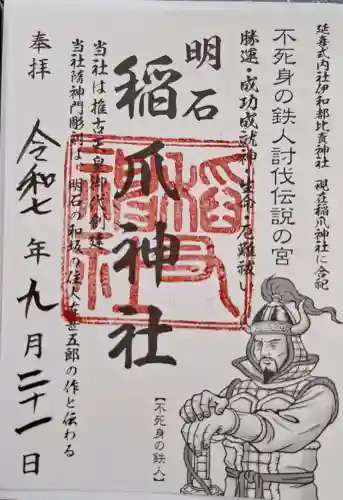 延喜式内社伊和都比賣神社 現在稲爪神社に合祀
不死身の鉄人討伐伝説の宮
勝運・成功成就神・生命・厄難救い
明石
稲爪神社
当社は推古天皇御代創建
当社随神門彫刻は、明石の和坂の住人左甚五郎の作と伝わる
奉拝
令和七年九月二十一日
【不死身の鉄人】